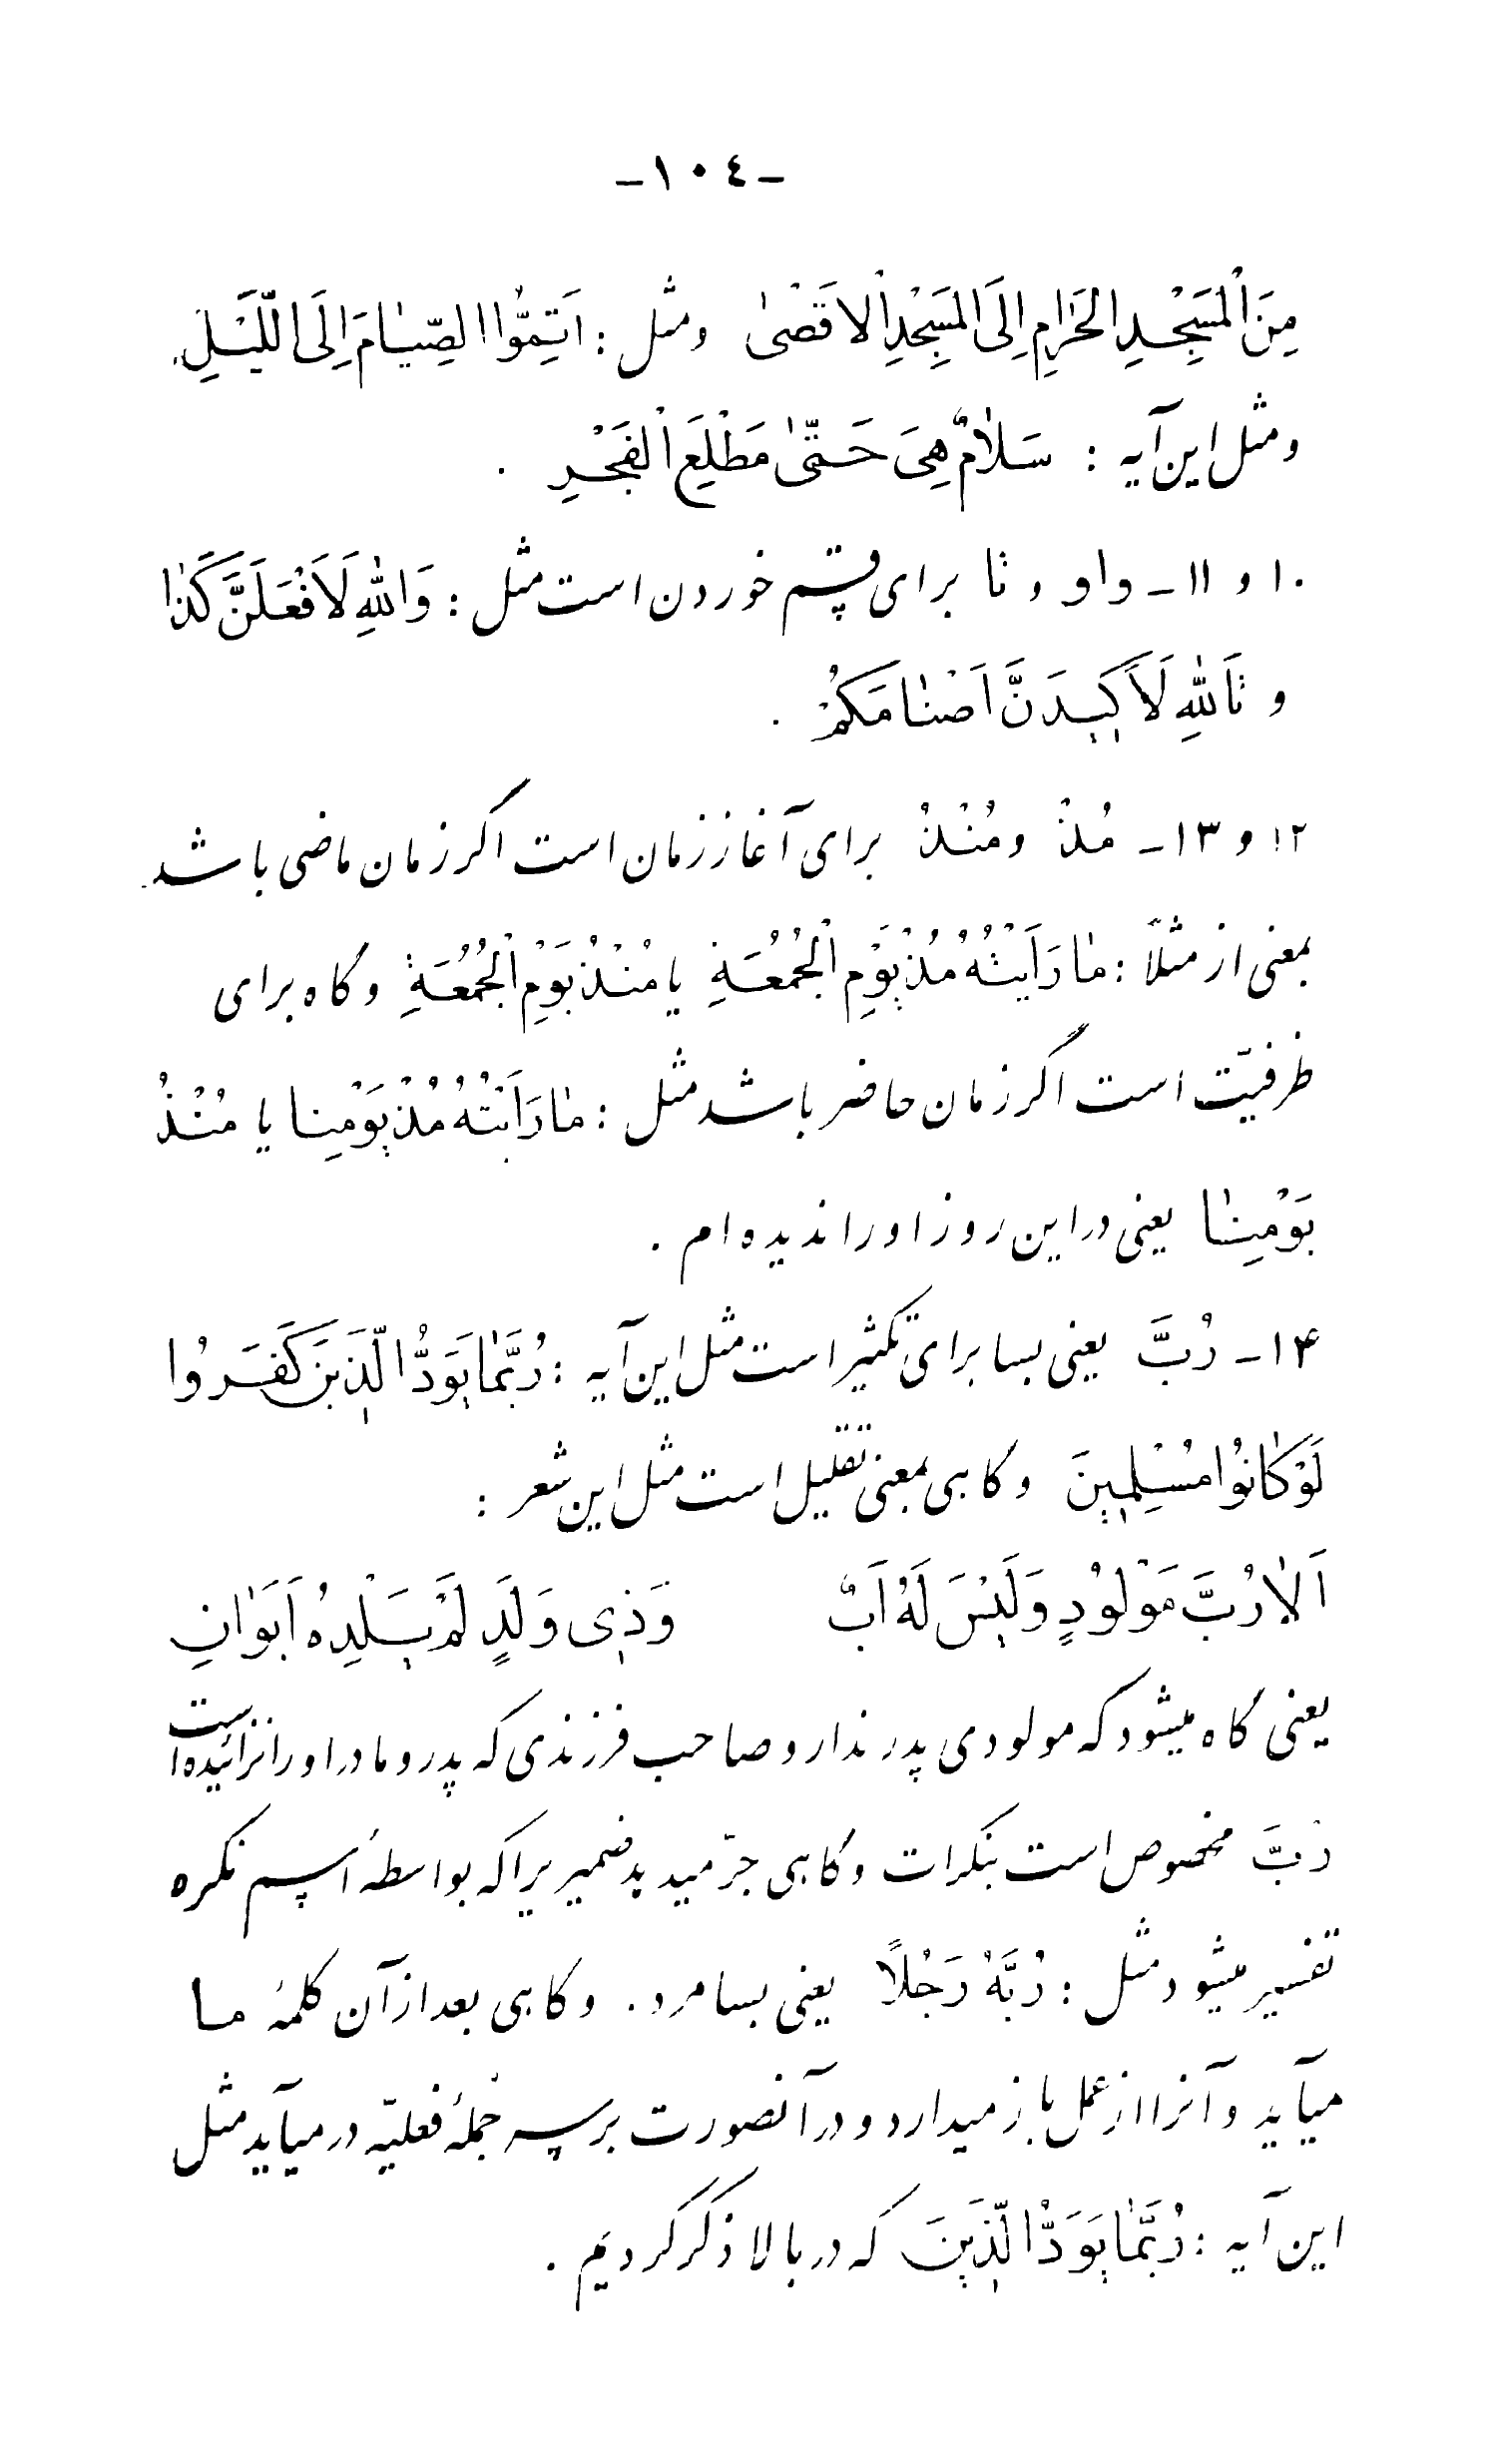 -١٠٤-
مِنَ الْمَسْجِدِ الْحَرٰامِ اِلَى الْمَسْجِدِ الْاَقْصٰى ومثل : اَتِمُّوا الصِّیٰامَ اِلَى اللَّیْلِ.
ومثل این آیه : سَلاٰمٌ هِیَ حَتّٰى مَطْلَعِ الْفَجْرِ .
۱۰ و ۱۱ - واو و تا برای قسم خوردن است مثل : وَاللّٰهِ لَاَفْعَلَنَّ کَذٰا
و تَاللّٰهِ لَاَکیدَنَّ اَصْنٰامَکُمْ .
۱۲ و ۱۳ - مُذْ ومُنْذُ برای آغاز زمان است اگر زمان ماضی باشد
بمعنی از مثلاً : مٰا رَاَیْتُهُ مُذْ یَوْمِ الْجُمُعَةِ یا مُنْذُ یَوْمِ الْجُمُعَةِ و گاه برای
ظرفیّت است اگر زمان حاضر باشد مثل : مٰا رَاَیْتُهُ مُذْ یَوْمِنا یا مُنْذُ
یَوْمِنٰا یعنی در این روز او را ندیده ام .
۱۴ - رُبَّ یعنی بسا برای تکثیر است مثل این آیه : رُبَّمٰا یَوَدُّ الَّذینَ کَفَرُوا
لَوْ کٰانُوا مُسْلِمینَ و گاهی بمعنی تقلیل است مثل این شعر :
اَلاٰ رُبَّ مَوْلُودٍ وَلَیْسَ لَهُ اَبٌ وَذی وَلَدٍ لَمْ یَلِدْهُ اَبَوٰانِ
یعنی گاه میشود که مولودی پدر ندارد و صاحب فرزندی که پدر و مادر او را نزائیده است
رُبَّ مخصوص است بنکرات و گاهی جرّ میدهد ضمیریرا که بواسطهٔ اسم نکره
تفسیر میشود مثل : رُبَّهُ رَجُلاً یعنی بسا مرد . و گاهی بعد از آن کلمهٔ ما
میآید و آنرا از عمل باز میدارد و در آنصورت بر سر جملهٔ فعلیّه در میآید مثل
این آیه : رُبَّمٰا یَوَدُّ الَّذینَ که در بالا ذکر کردیم .